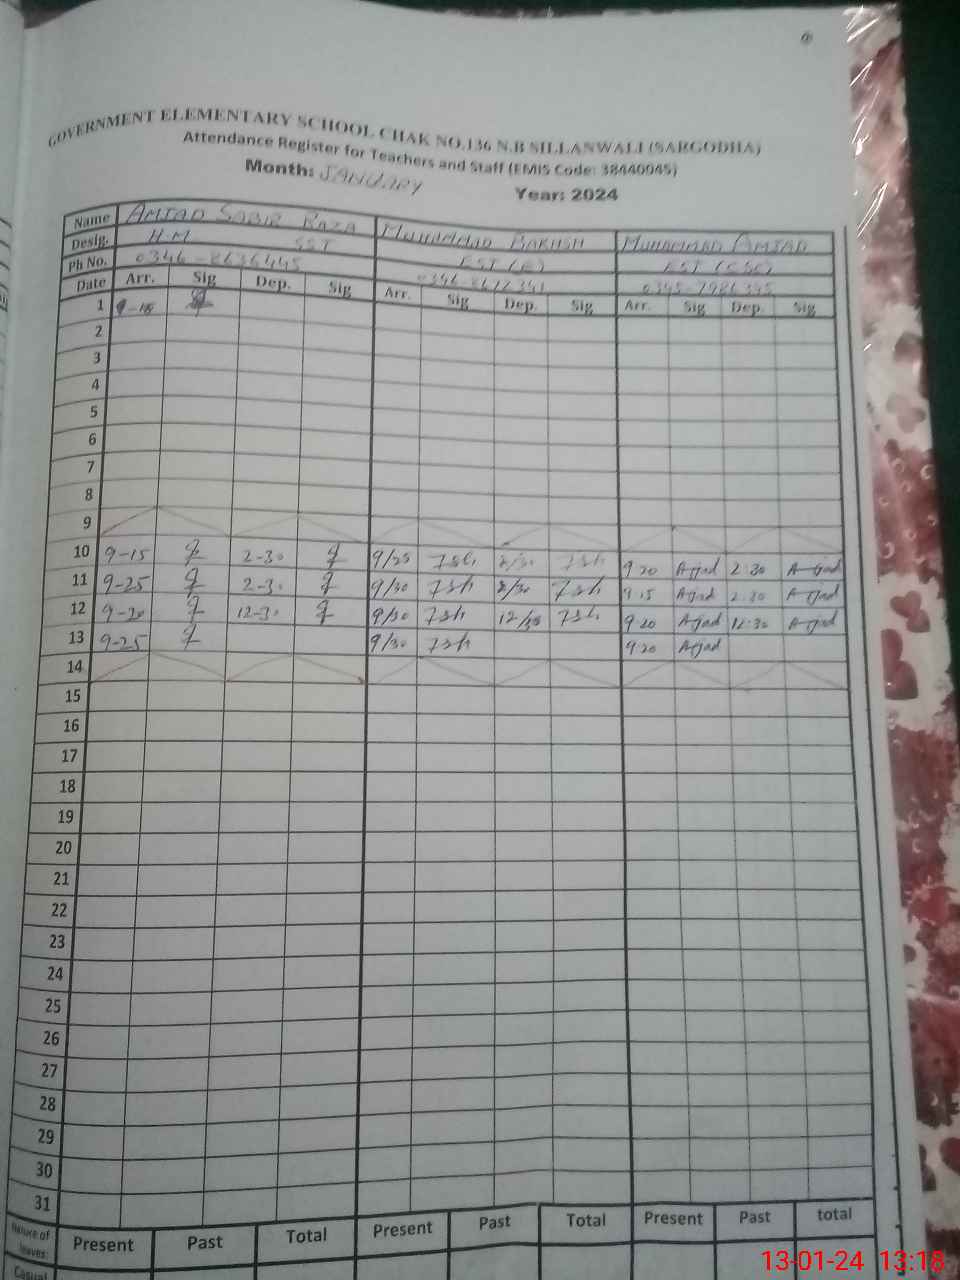 GOVERNMENT ELEMENTARY SCHOOL CHAK NO.136 N.B SILLANWALI (SARGODHA)
Attendance Register for Teachers and Staff (EMIS Code: 38440045)
Month: JANUARY Year: 2024
Name AMJAD SABIR RAZA MUHAMMAD BAKHSH MUHAMMAD AMJAD
Desig. H.M SST EST (E) EST (CSC)
Ph No. 0346-8636445 0345-7986395
Date Arr. Sig Dep. Sig Arr. Sig Dep. Sig Arr. Sig Dep. Sig
1 9-18
2
3
4
5
6
7
8
9
10 9-15 2-30 9/25 2/30 9 20 Amjad 2:30 Amjad
11 9-25 2-30 9/30 2/30 9 15 Amjad 2:30 Amjad
12 9-20 12-30 9/30 12/30 9 20 Amjad 12:30 Amjad
13 9-25 9/30 9 20 Amjad
14
15
16
17
18
19
20
21
22
23
24
25
26
27
28
29
30
31
Nature of leaves: Present Past Total Present Past Total Present Past total
Casual
13-01-24 13:18